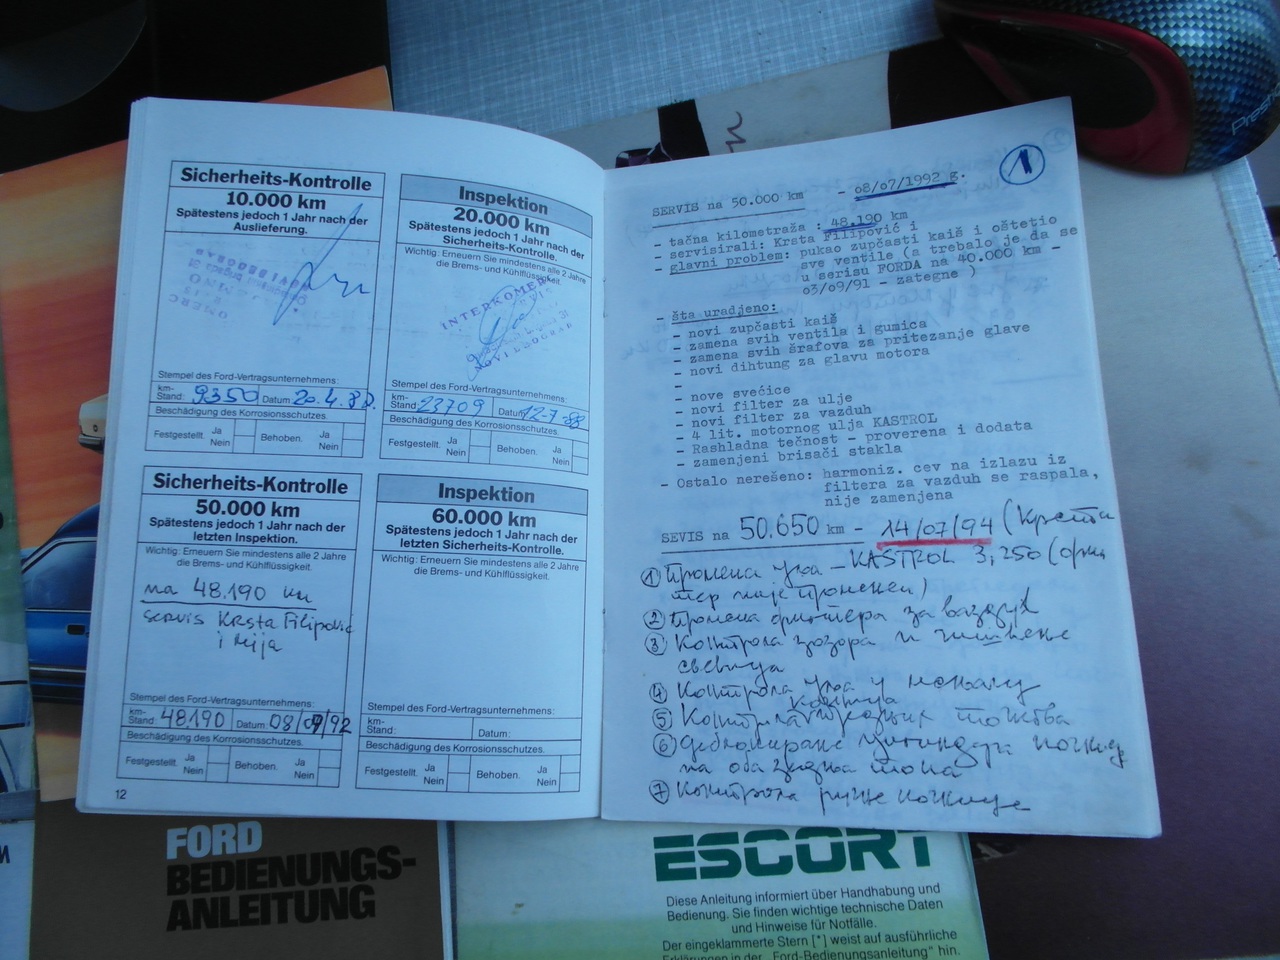 Sicherheits-Kontrolle
10.000 km
Spätestens jedoch 1 Jahr nach der
Auslieferung.
Stempel des Ford-Vertragsunternehmens:
km-
Stand: 9350 Datum: 20.4.88.
Beschädigung des Korrosionsschutzes.
Festgestellt. Ja Behoben. Ja
Nein Nein
Inspektion
20.000 km
Spätestens jedoch 1 Jahr nach der
Sicherheits-Kontrolle.
Wichtig: Erneuern Sie mindestens alle 2 Jahre
die Brems- und Kühlflüssigkeit.
INTERKOMERC
NOVI BEOGRAD
Stempel des Ford-Vertragsunternehmens:
km-
Stand: 23709 Datum: 12-7-88
Beschädigung des Korrosionsschutzes.
Festgestellt. Ja Behoben. Ja
Nein Nein
Sicherheits-Kontrolle
50.000 km
Spätestens jedoch 1 Jahr nach der
letzten Inspektion.
Wichtig: Erneuern Sie mindestens alle 2 Jahre
die Brems- und Kühlflüssigkeit.
na 48.190 km
servis Krsta Filipović
i
Stempel des Ford-Vertragsunternehmens:
km-
Stand: 48190 Datum: 08/07/92
Beschädigung des Korrosionsschutzes.
Festgestellt. Ja Behoben. Ja
Nein Nein
Inspektion
60.000 km
Spätestens jedoch 1 Jahr nach der
letzten Sicherheits-Kontrolle.
Wichtig: Erneuern Sie mindestens alle 2 Jahre
die Brems- und Kühlflüssigkeit.
Stempel des Ford-Vertragsunternehmens:
km-
Stand: Datum:
Beschädigung des Korrosionsschutzes.
Festgestellt. Ja Behoben. Ja
Nein Nein
12
1
SERVIS na 50.000 km - 08/07/1992 g.
- tačna kilometraža : 48.190 km
- servisirali: Krsta Filipović i
- glavni problem: pukao zupčasti kaiš i oštetio
sve ventile (a trebalo je da se
u serisu FORDA na 40.000 km -
03/09/91 - zategne )
- šta uradjeno:
- novi zupčasti kaiš
- zamena svih ventila i gumica
- zamena svih šrafova za pritezanje glave
- novi dihtung za glavu motora
-
- nove svećice
- novi filter za ulje
- novi filter za vazduh
- 4 lit. motornog ulja KASTROL
- Rashladna tečnost - proverena i dodata
- zamenjeni brisači stakla
- Ostalo nerešeno: harmoniz. cev na izlazu iz
filtera za vazduh se raspala,
nije zamenjena
SEVIS na 50.650 km - 14/07/94 (Крста
① Промена уља - KASTROL 3,250 (фил
тер није промењен)
② Промена филтера за ваздух
③ Контрола зазора и чишћење
свећица
④ Контрола уља у мењачу
⑤ Контрола точкова
⑥ Деблокирање цилиндара кочнице
на оба задња точка
⑦ Контрола ручне кочнице
FORD
BEDIENUNGS-
ANLEITUNG
ESCORT
Diese Anleitung informiert über Handhabung und
Bedienung. Sie finden wichtige technische Daten
und Hinweise für Notfälle.
Der eingeklammerte Stern [*] weist auf ausführliche
Erklärungen in der „Ford-Bedienungsanleitung" hin.